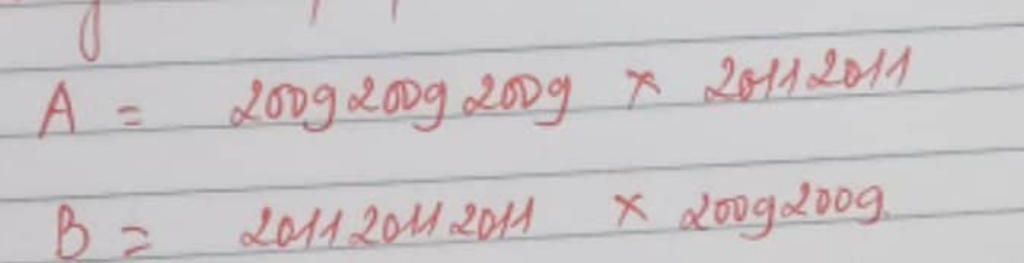 A = 200920092009 × 20112011
B = 201120112011 × 20092009.